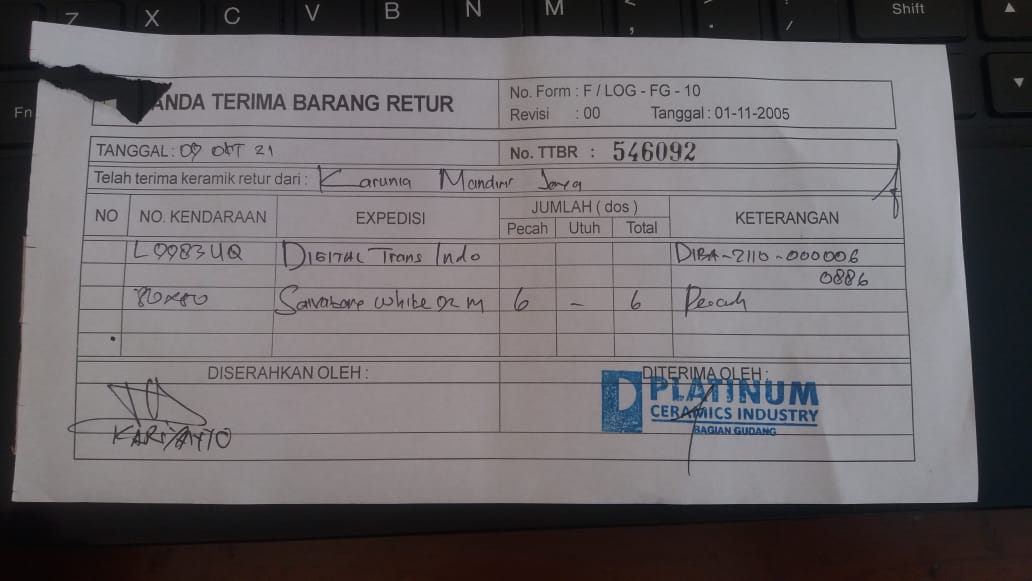 Z X C V B N M Shift
Fn
ANDA TERIMA BARANG RETUR
No. Form : F / LOG - FG - 10
Revisi : 00 Tanggal : 01-11-2005
TANGGAL : 09 OKT 21
No. TTBR : 546092
Telah terima keramik retur dari : Karunia Mandiri Jaya
NO NO. KENDARAAN EXPEDISI JUMLAH ( dos ) KETERANGAN
Pecah Utuh Total
L 9983 UQ DIGITAL Trans Indo DIBA-2110-000006
0886
80x80 white 02 M 6 - 6 Pecah
DISERAHKAN OLEH : DITERIMA OLEH :
KARIYANTO
D PLATINUM
CERAMICS INDUSTRY
BAGIAN GUDANG